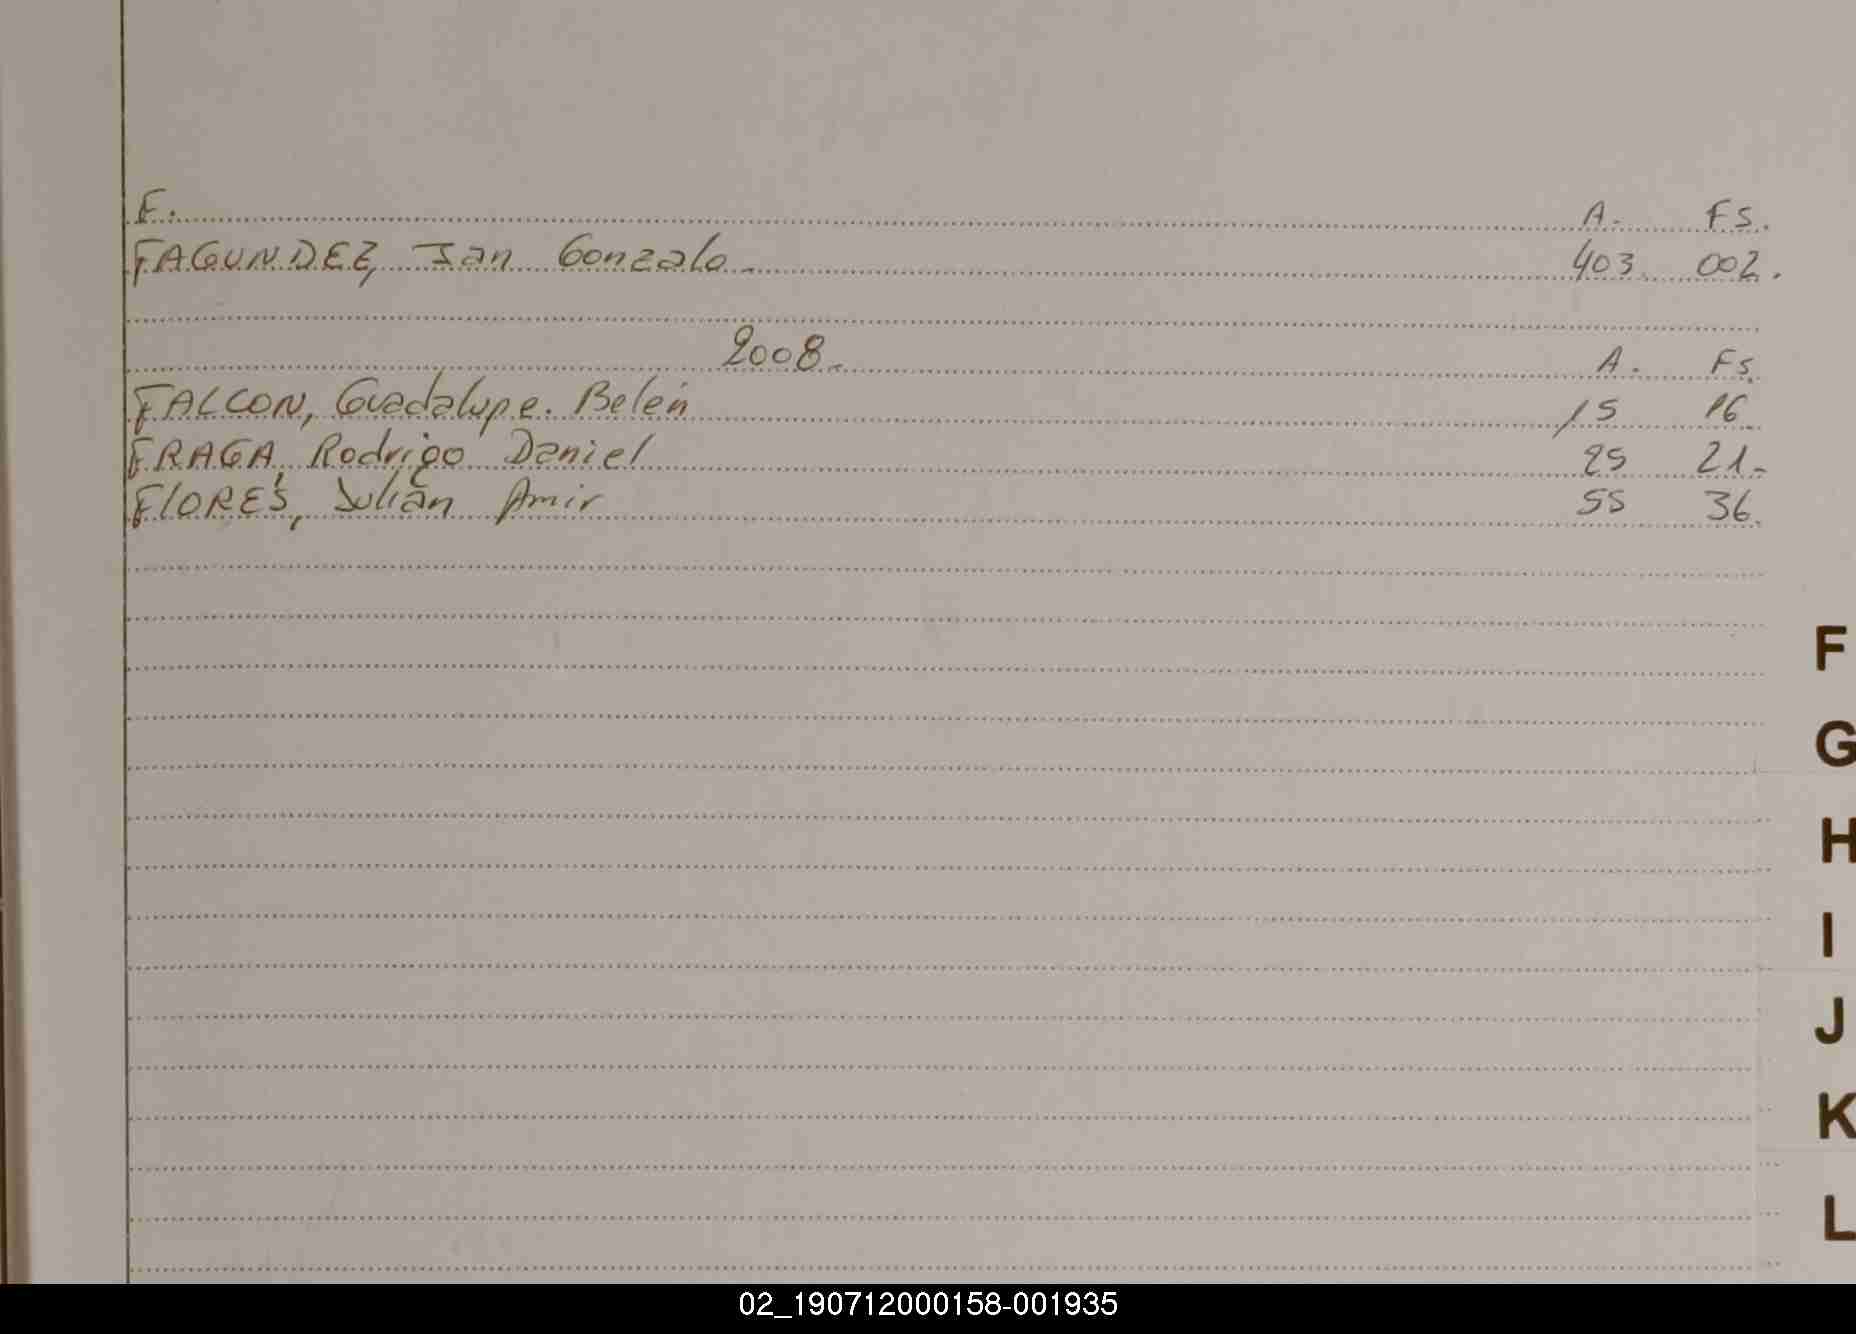 F. A. Fs.
FAGUNDEZ, Ian Gonzalo. 403 002.
2008.-
A. Fs.
FALCON, Guadalupe. Belén 15 16
FRAGA, Rodrigo Daniel 25 21-
FlORES, Julián Amir 55 36.
F
G
H
I
J
K
L
02_190712000158-001935